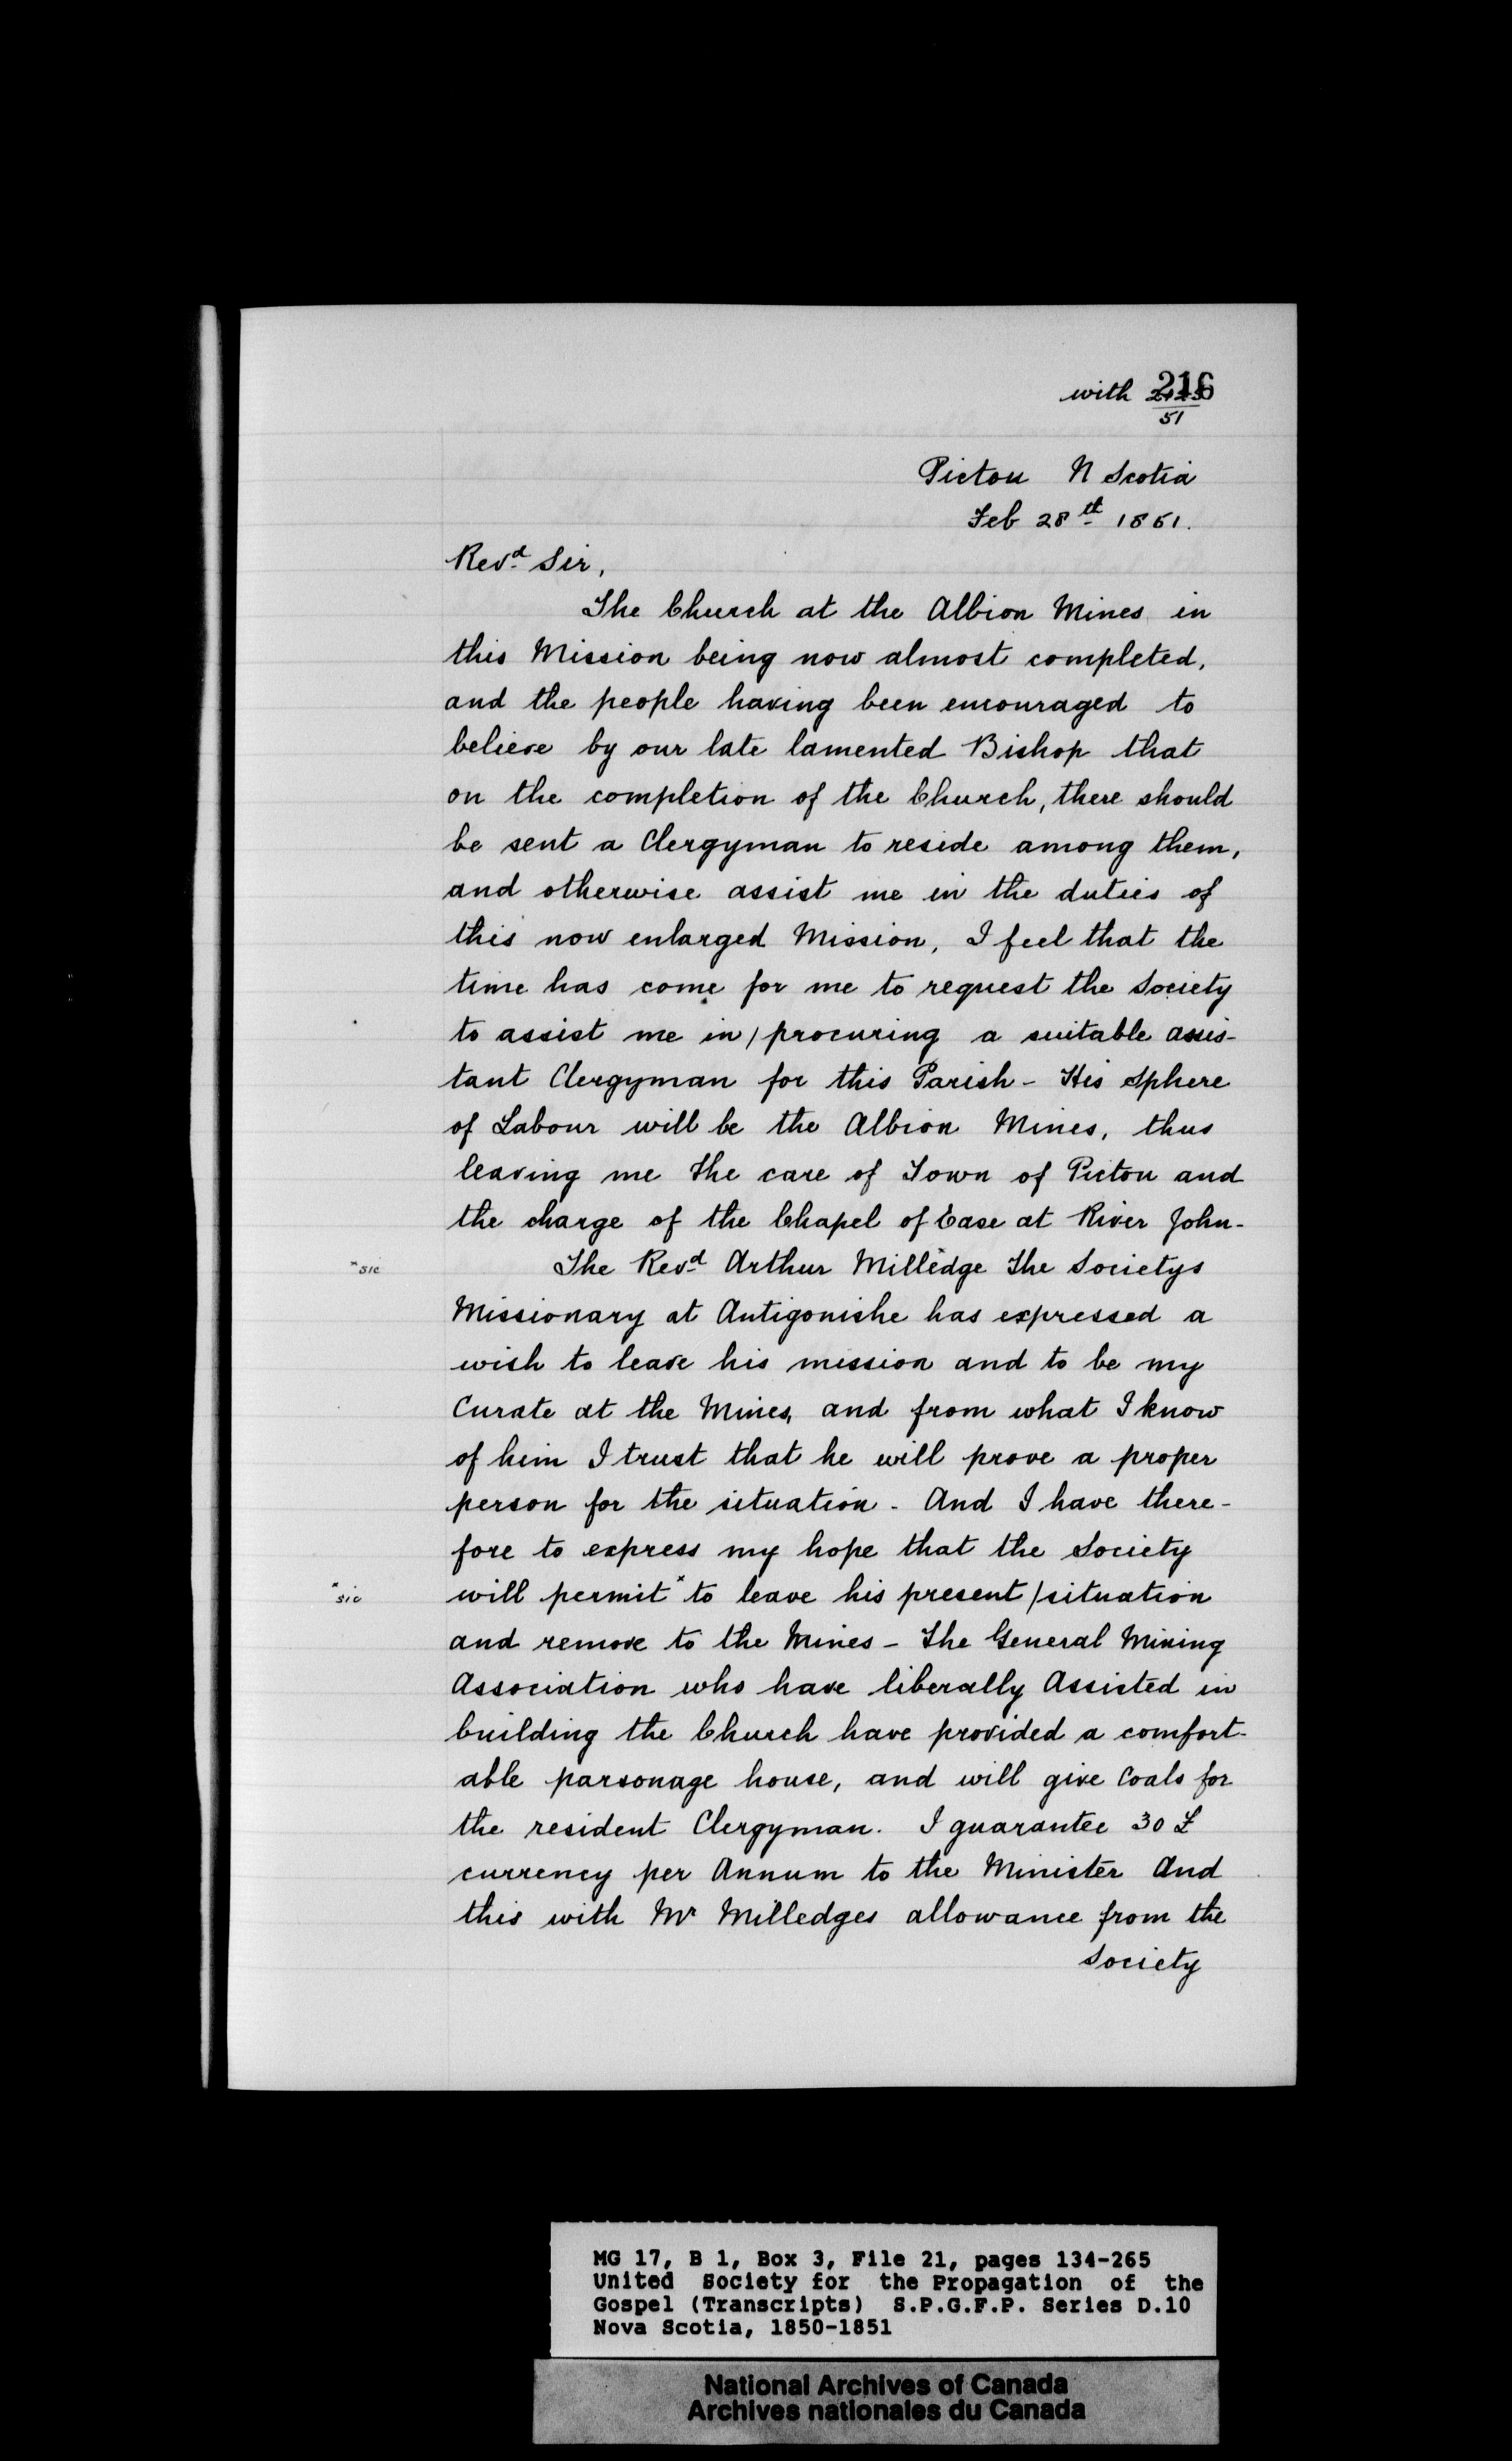 with 216
51
Pictou N Scotia
Feb 28th 1851.
Revd Sir,
The Church at the Albion Mines in
this Mission being now almost completed,
and the people having been encouraged to
believe by our late lamented Bishop that
on the completion of the Church, there should
be sent a Clergyman to reside among them,
and otherwise assist me in the duties of
this now enlarged Mission, I feel that the
time has come for me to request the Society
to assist me in / procuring a suitable assis-
tant Clergyman for this Parish - His Sphere
of Labour will be the Albion Mines, thus
leaving me the care of Town of Pictou and
the charge of the Chapel of Ease at River John-
*sic
The Revd Arthur Milledge the Societys
Missionary at Antigonishe has expressed a
wish to leave his mission and to be my
Curate at the Mines, and from what I know
of him I trust that he will prove a proper
person for the situation - And I have there-
fore to express my hope that the Society
*sic
will permit* to leave his present / situation
and remove to the Mines - The General Mining
Association who have liberally Assisted in
building the Church have provided a comfort-
able parsonage house, and will give Coals for
the resident Clergyman. I guarantee 30 £
currency per Annum to the Minister And
this with Mr Milledges allowance from the
Society
MG 17, B 1, Box 3, File 21, pages 134-265
United Society for the Propagation of the
Gospel (Transcripts) S.P.G.F.P. Series D.10
Nova Scotia, 1850-1851
National Archives of Canada
Archives nationales du Canada